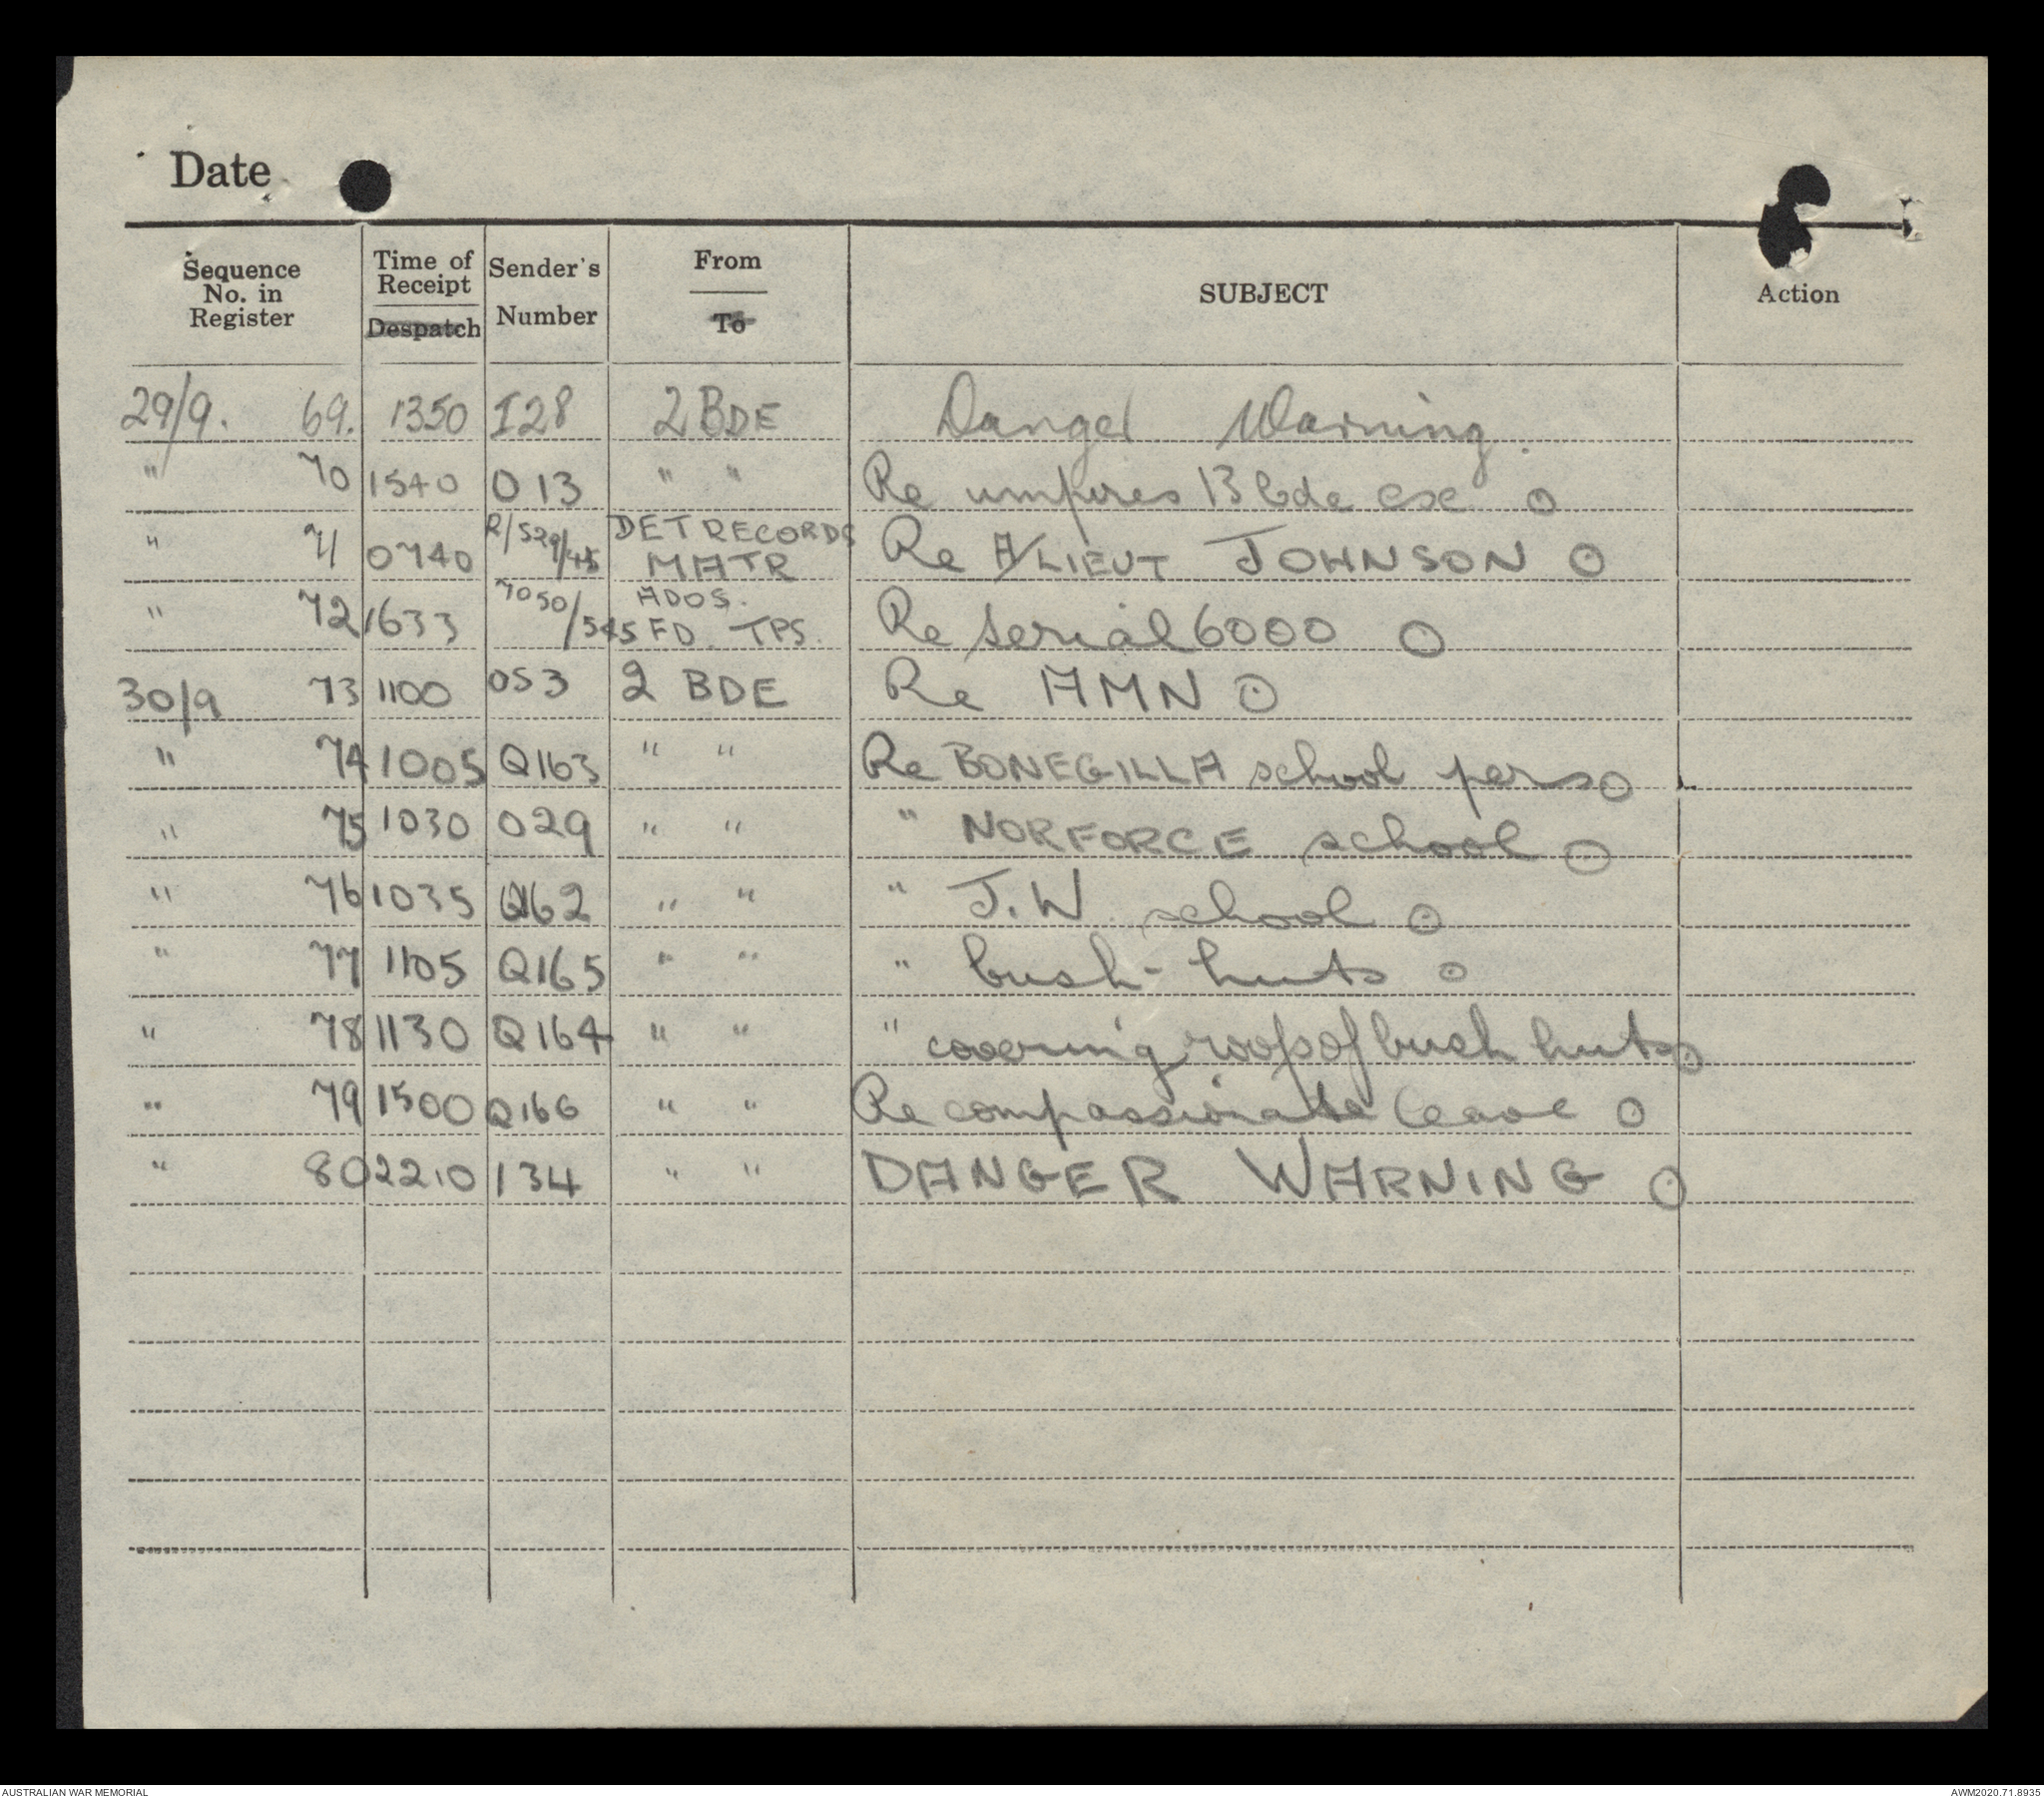 Date
Sequence No. in Register | Time of Receipt Despatch | Sender's Number | From To | SUBJECT | Action
29/9. 69. 1350 I28 2 BDE Danger Warning.
" 70 1540 O 13 " " Re umpires 13 bde exe ⊙
" 71 0740 R/529/45 DET RECORDS MATR Re A/LIEUT JOHNSON ⊙
" 72 1633 7050/545 ADOS. FD. TPS. Re serial 6000 ⊙
30/9 73 1100 053 2 BDE Re AMN ⊙
" 74 1005 Q163 " " Re BONEGILLA school pers ⊙
" 75 1030 029 " " " NORFORCE school ⊙
" 76 1035 Q162 " " " J.W school ⊙
" 77 1105 Q165 " " " bush-huts ⊙
" 78 1130 Q164 " " " covering roofs of bush huts ⊙
" 79 1500 Q166 " " Re compassionate leave ⊙
" 80 2210 134 " " DANGER WARNING ⊙
AUSTRALIAN WAR MEMORIAL
AWM2020.71.8935